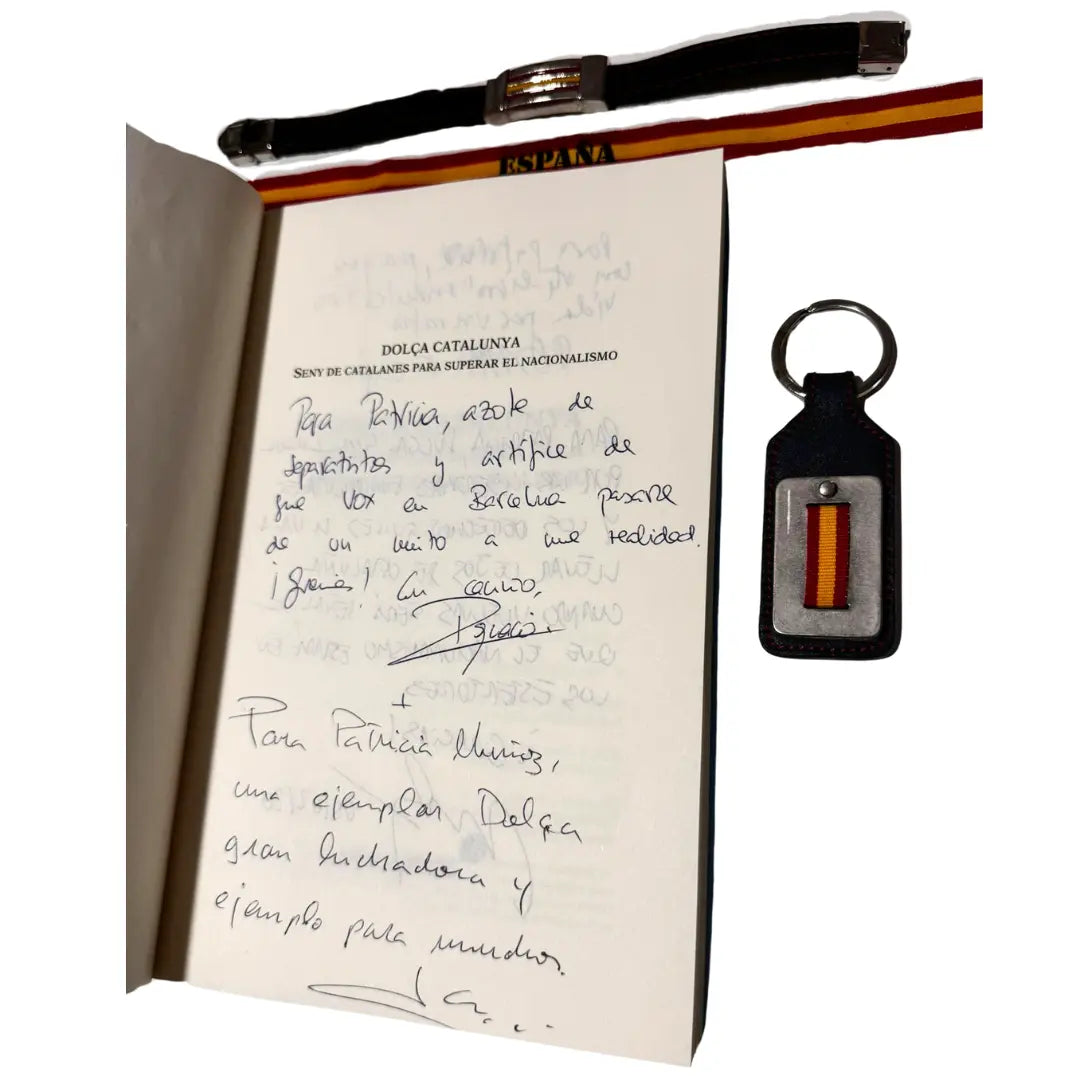 ESPAÑA
DOLÇA CATALUNYA
SENY DE CATALANES PARA SUPERAR EL NACIONALISMO
Para Patricia, azote de
separatistas y artífice de
que VOX en Barcelona pasase
de un mito a una realidad.
¡Gracias! Con cariño,
Ignacio.
+
Para Patricia Muñoz,
una ejemplar Dolça
gran luchadora y
ejemplo para muchos.